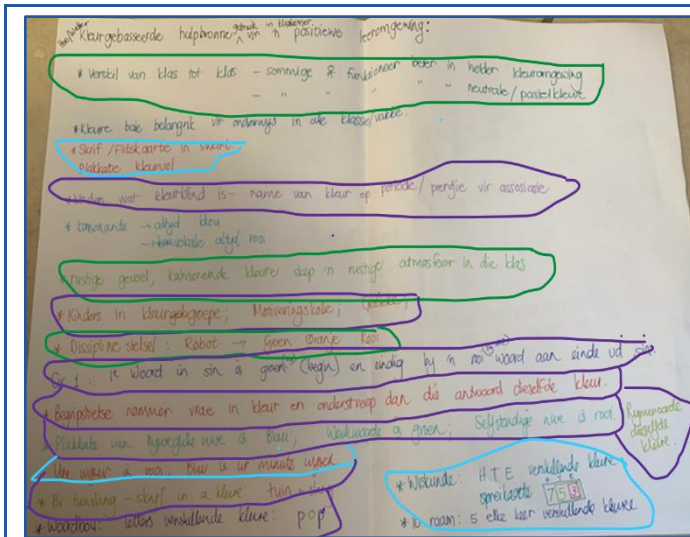 Kleurgebaseerde hulpbronne vir 'n positiewe leeromgewing:
* Verskil van klas tot klas - sommige funksioneer beter in helder kleuromgewing
- " " " " " neutrale/pastelkleure
* Kleure baie belangrik vir onderwys in alle klasse/vakke.
* Skrif/Flitskaarte in
Plakkate kleurvol
wat kleurblind is - name van kleur op potlode/prentjie vir assosiasie
* konsonante → altyd blou
→ vokale altyd rooi
* rustige gevoel, kalmerende kleure skep 'n rustige atmosfeer in die klas
* Kinders in kleurgebgroepe; Motiveringskolle;
* Dissipline stelsel: Robot → Groen Oranje Rooi
Gr 1: 1e woord in sin is groen (begin) en eindig by 'n rooi woord aan einde vd sin.
* Begripstoetse nommer vrae in kleur en onderstreep dan die antwoord dieselfde kleur.
Plakkate van byvoeglike nwe is Blou, Werkwoorde is groen; Selfstandige nwe is rooi.
Rymwoorde
dieselfde
kleure.
Uur wyser is rooi. Blou is vir minute wyser
* By tweeklang - skryf in 2 kleure: tuin -
* Woordbou: letters verskillende kleure: pop
* Wiskunde: HTE verskillende kleure
spreikaarte HTE
753
* 10 raam: 5 elke keer verskillende kleure